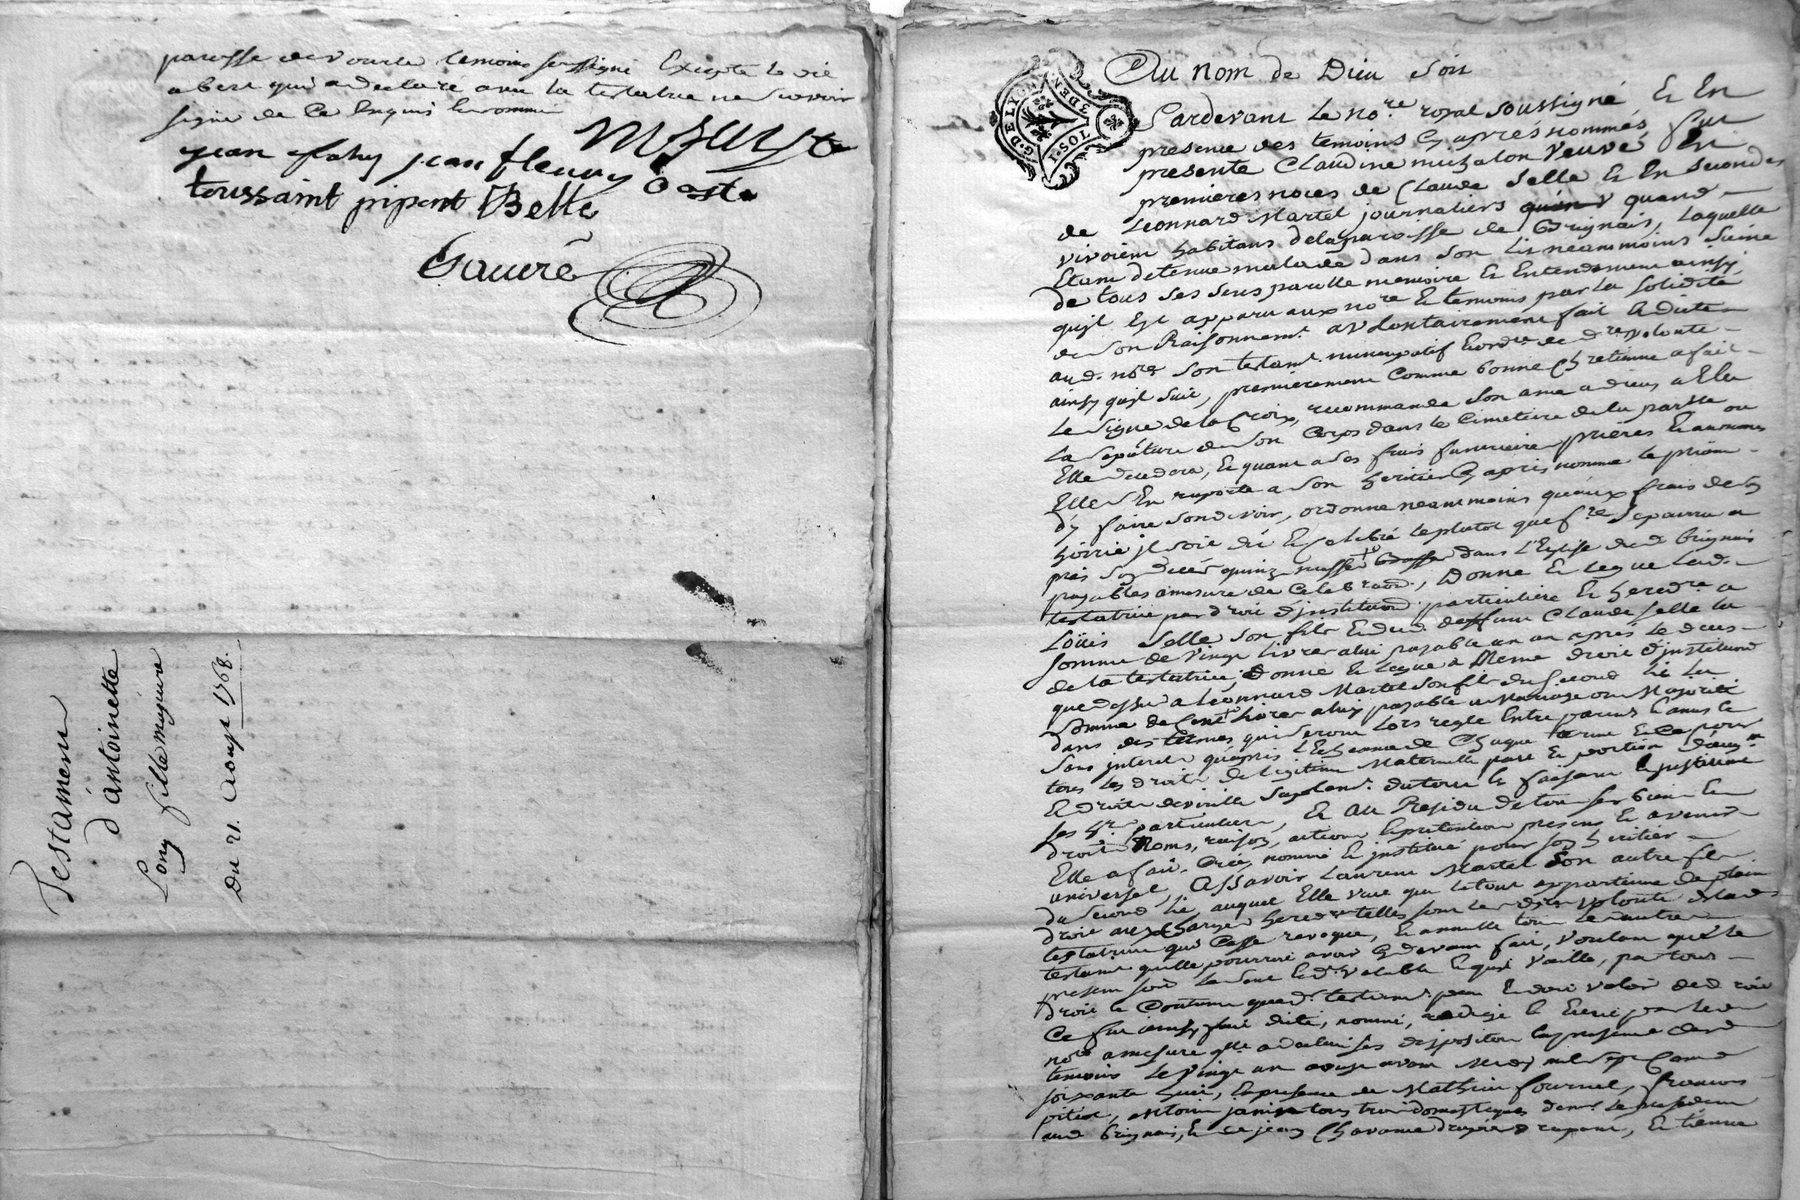 paroisse de vourle temoins soussigné Excepté le dit
abert qui a declaré avec la testatrice ne scavoir
signé de Ce Enquis
jean flahy jean fleury Coste
toussaint pipont Belte
Gaucré
Testament
d'antoinette
Lony fille majeure
Du 21. Aoust 1768.
G. DE LYON
Au nom de Dieu soit
Pardevant le no.re royal soussigné, Et En
presence des temoins Cy aprés nommés, fut
presente Claudine mizalon veuve, En
premieres noces de Claude Selle Et En secondes
de Leonnard Martel journaliers quand
vivoient habitans de la paroisse de Brignais, Laquelle
Etant detenue malade dans son lit neammoins saine
de tous ses sens parolle memoire Et Entendement ainsy
qu'jl Est apparu aux no.re Et temoins par la solidité
de son Raisonnem.t a volontairement fait Et dicté
aud. no.re son testam.t nuncupatif Et ord.re de d.re volonté
ainsy qu'jl suit, premierement Comme bonne Chretienne a fait
Le signe de la Croix, recommande son ame a dieu, a Elu
La sepulture de son Corps dans le Cimetiere de la par.sse ou
Elle decedera, Et quant a ses frais funeraires prieres Et aumones
Elle s'En raporte a son heritier Cy aprés nommé le priant
d'y faire son devoir, ordonne neammoins qu'aux frais de sa
hoirrie jl soit dit Et Celebré le plutot que f.re se pourra a
prés son decés quinze messes dans L'Eglise dud. Brignais
payables a mesure de Celebraõn, Donne Et Legue Lad.
testatrice par droit d'jnstitution particuliere Et hered.re a
Loüis Selle son fils Et dud. deffunt Claude Selle la
somme de vingt Livres a lui payable un an aprés le deces
de la testatrice, Donne Et Legue a Meme droit d'jnstitution
que dessus a Leonnard Martel son fils du second lit la
somme de Cent Livres a luy payable a Mariage ou Majorité
dans des termes qui seront Lors reglé Entre parens Et amis le
sans jnteret qu'aprés L'Echeance de Chaque terme Et Ce pour
tous les droits de legitime Maternelle part Et portion d'augm.t
Et droits de virille Suplem.t du tout Et faisant Et jnstituant
ses h.rs particuliers, Et Au Residu de tous ses biens Et
droits Noms, raisons, actions Et pretentions presens Et avenir
Elle a fait, Créé, nommé Et jnstitué pour son heritier
universel, Assavoir Laurent Martel son autre fils
du second lit auquel Elle veut que le tout appartienne de plain
droit aux Charges hered.res telles sont les d.res volontés de lad.
testatrice qui Casse revoque, Et annulle tous les autres
testamt qu'elle pourroit avoir Cy devant fait, voulant que le
present soit le seul Et d.r valable Et qu'jl vaille, par tous
droits Et Coutume que d. testam.t peu Et doit valoir de droit
Ce fut ainsy fait dicté, nommé, redigé Et Ecrit par led.
no.re a mesure qu'elle a declaré ses dispositions En presence desd.
temoins Le vingt un aoust avant Midy mil sept Cent
soixante huit, En presence de Mathieu fournel, francois
pitiot, antoine janin tous trois domestiques dem.t
aud. Brignais, Et de jean Chavanne, Et Etienne